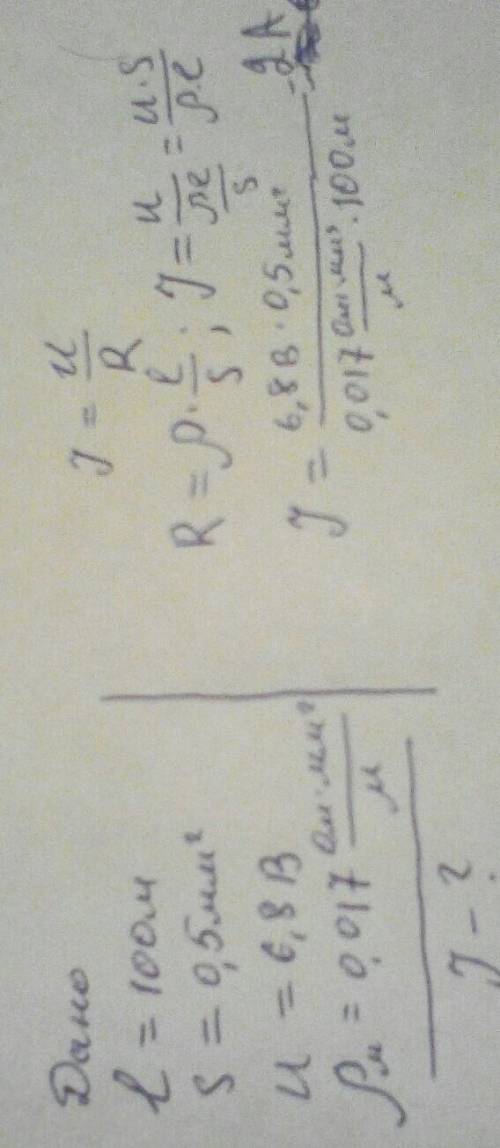 Дано
l = 100м
S = 0,5мм²
U = 6,8В
ρм = 0,017 Ом·мм²/м
J - ?
J = U/R
R = ρ·l/S; J = U/(ρl/S) = U·S/ρ·l
J = 6,8В·0,5мм²/0,017 Ом·мм²/м·100м = 2А